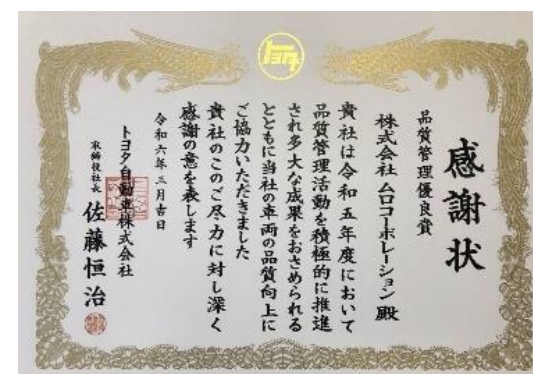 トヨタ
感謝状
品質管理優良賞
株式会社ムロコーポレーション殿
貴社は令和五年度において
品質管理活動を積極的に推進
され多大な成果をおさめられる
とともに当社の車両の品質向上に
ご協力いただきました
貴社のこのご尽力に対し深く
感謝の意を表します
令和六年三月吉日
トヨタ自動車株式会社
取締役社長 佐藤恒治